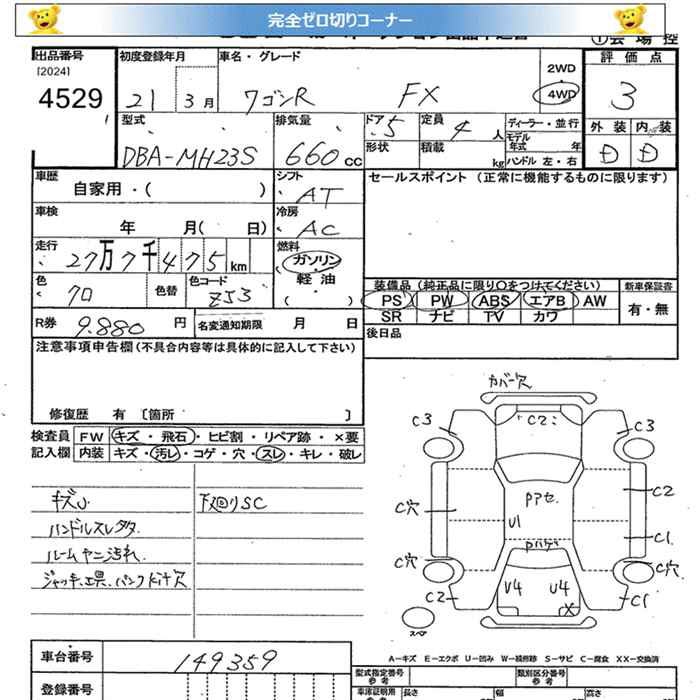 完全ゼロ切りコーナー
出品番号
[2024]
4529
初度登録年月
21 3月
車名・グレード
ワゴンR FX
2WD
4WD
評価点
3
外装 内装
D D
型式
DBA-MH23S
排気量
660cc
ドア
5
定員
4人
ディーラー・並行
モデル年式 年
形状
積載 kg
ハンドル 左・右
車歴
自家用・( )
シフト
AT
セールスポイント (正常に機能するものに限ります)
車検
年 月( 日)
冷房
AC
走行
27万7千475km
燃料
ガソリン・
軽油
( )
色
クロ
色替
色コード
ZJ3
装備品(純正品に限り○をつけてください)
PS PW ABS エアB AW
SR ナビ TV カワ
新車保証書
有・無
R券
9.880円
名変通知期限 月 日
後日品
注意事項申告欄(不具合内容等は具体的に記入して下さい)
修復歴 有 [箇所 ]
検査員
記入欄
FW キズ・飛石・ヒビ割・リペア跡・×要
内装 キズ・汚レ・コゲ・穴・スレ・キレ・破レ
キズU
下廻りSC
ハンドルスレタタ.
ルームヤニ汚れ.
ジャッキ、工具、パンクキット欠
カバー欠
C3 C2 C3
C穴 C2
Pアセ
U1
C1
Pハゲ
C穴 C穴
C2 U4 U4 X C1
スペア
A−キズ E−エクボ U−凹み W−補修跡 S−サビ C−腐食 XX−交換済
車台番号
149359
登録番号
型式指定番号
参考
類別区分番号
参考
長さ
幅
高さ